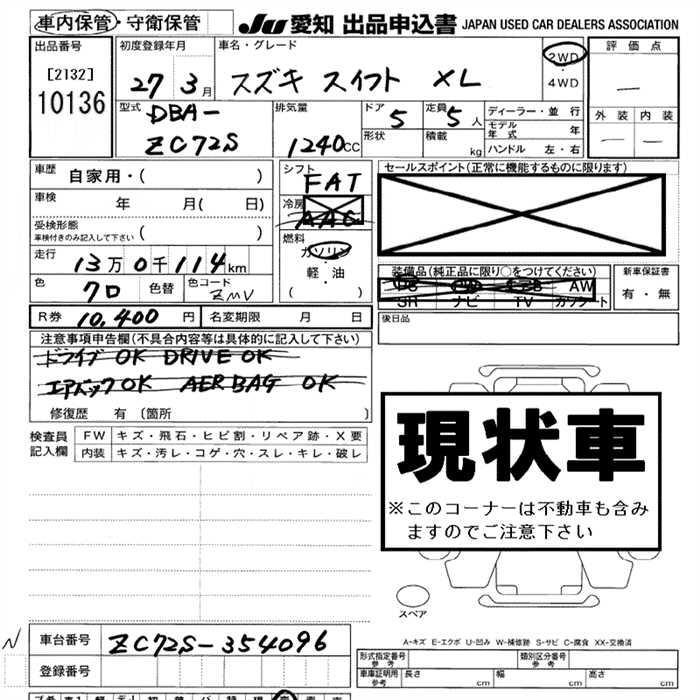 車内保管・守衛保管
JU 愛知 出品申込書 JAPAN USED CAR DEALERS ASSOCIATION
出品番号
[2132]
10136
初度登録年月
27 3月
車名・グレード
スズキ スイフト XL
2WD
4WD
評価点
—
外装 内装
— —
型式
DBA-
ZC72S
排気量
1240cc
ドア 5
形状
定員 5人
積載 kg
ディーラー・並行
モデル年式 年
ハンドル 左・右
車歴 自家用・( )
車検 年 月( 日)
受検形態
車検付きのみ記入して下さい ( )
走行 13万0千114km
色 クロ 色替 色コード ZMV
シフト
FAT
冷房
AAC
燃料
ガソリン
・
軽・油
( )
セールスポイント(正常に機能するものに限ります)
装備品(純正品に限り○をつけてください)
AW
SR ナビ TV カセット
新車保証書
有・無
R券 10,400円 名変期限 月 日
後日品
注意事項申告欄(不具合内容等は具体的に記入して下さい)
ドライブ OK DRIVE OK
エアバック OK AERBAG OK
修復歴 有(箇所 )
検査員記入欄
FW キズ・飛石・ヒビ割・リペア跡・X要
内装 キズ・汚レ・コゲ・穴・スレ・キレ・破レ
現状車
※このコーナーは不動車も含み
ますのでご注意下さい
スペア
A-キズ E-エクボ U-凹み W-補修跡 S-サビ C-腐食 XX-交換済
N 車台番号 ZC72S-354096
登録番号
形式指定番号 参考
類別区分番号 参考
車庫証明用 参考 長さ cm 幅 cm 高さ cm